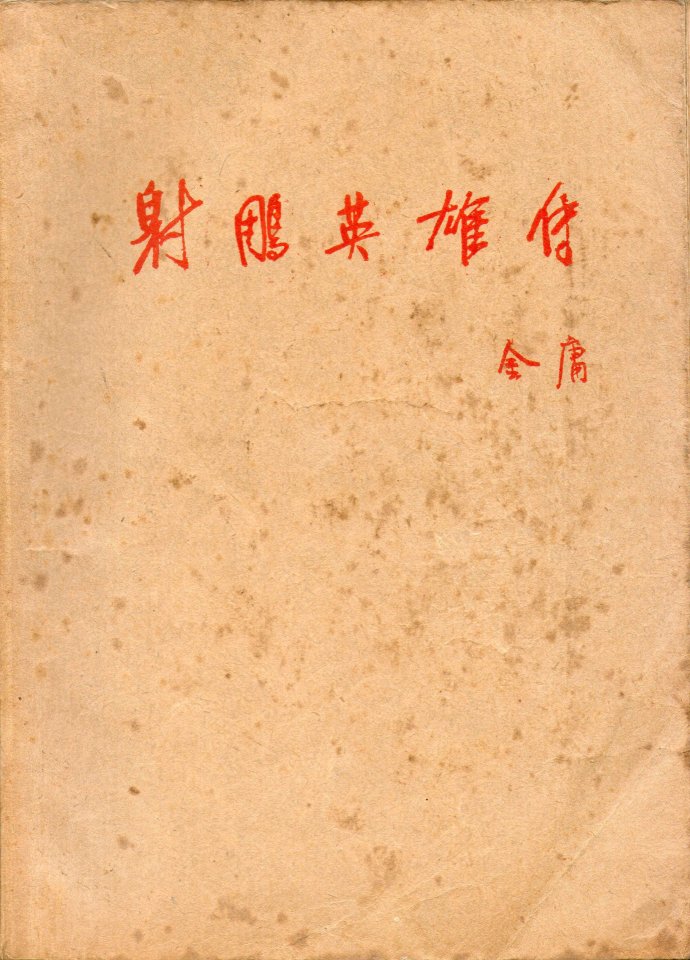 射鵰英雄传
金庸